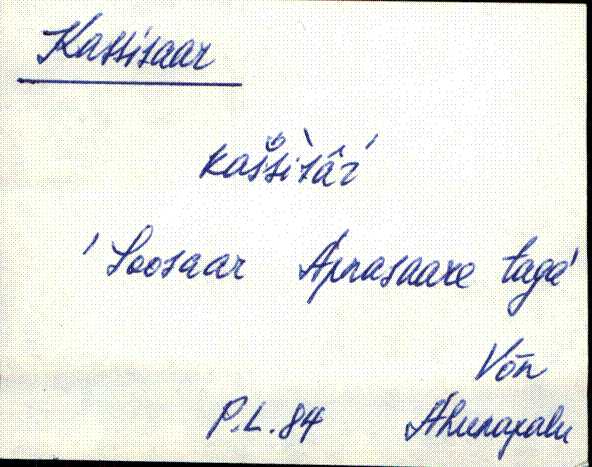 Kassisaar
kaššìsâŕ
'Soosaar Apnasaare taga'
Võn
P.L. 84 Ahunapalu